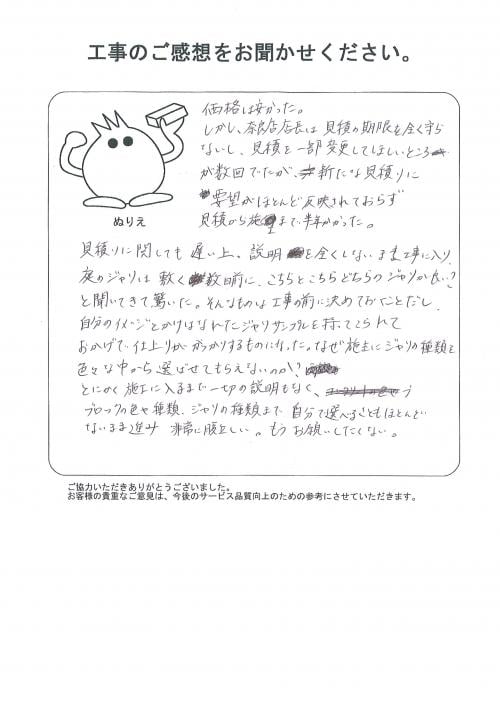 工事のご感想をお聞かせください。
価格は安かった。
しかし、奈良店店長は見積の期限を全く守ら
ないし、見積を一部変更してほしいところ
が数回でたが、新たな見積りに
要望がほとんど反映されておらず
見積から施工まで半年かかった。
ぬりえ
見積りに関しても遅い上、説明を全くしないまま工事に入り、
庭のジャリは敷く数日前に、こちらとこちらどちらのジャリが良い?
と聞いてきて驚いた。そんなものは工事の前に決めておくことだし、
自分のイメージとかけはなれたジャリサンプルを持ってこられて
おかげで仕上りがガッカリするものになった。なぜ施主にジャリの種類を
色々な中から選ばせてもらえないのか?
とにかく施工に入るまで一切の説明もなく、
ブロックの色や種類、ジャリの種類まで自分で選べることもほとんど
ないまま進み 非常に腹立しい。もうお願いしたくない。
ご協力いただきありがとうございました。
お客様の貴重なご意見は、今後のサービス品質向上のための参考にさせていただきます。